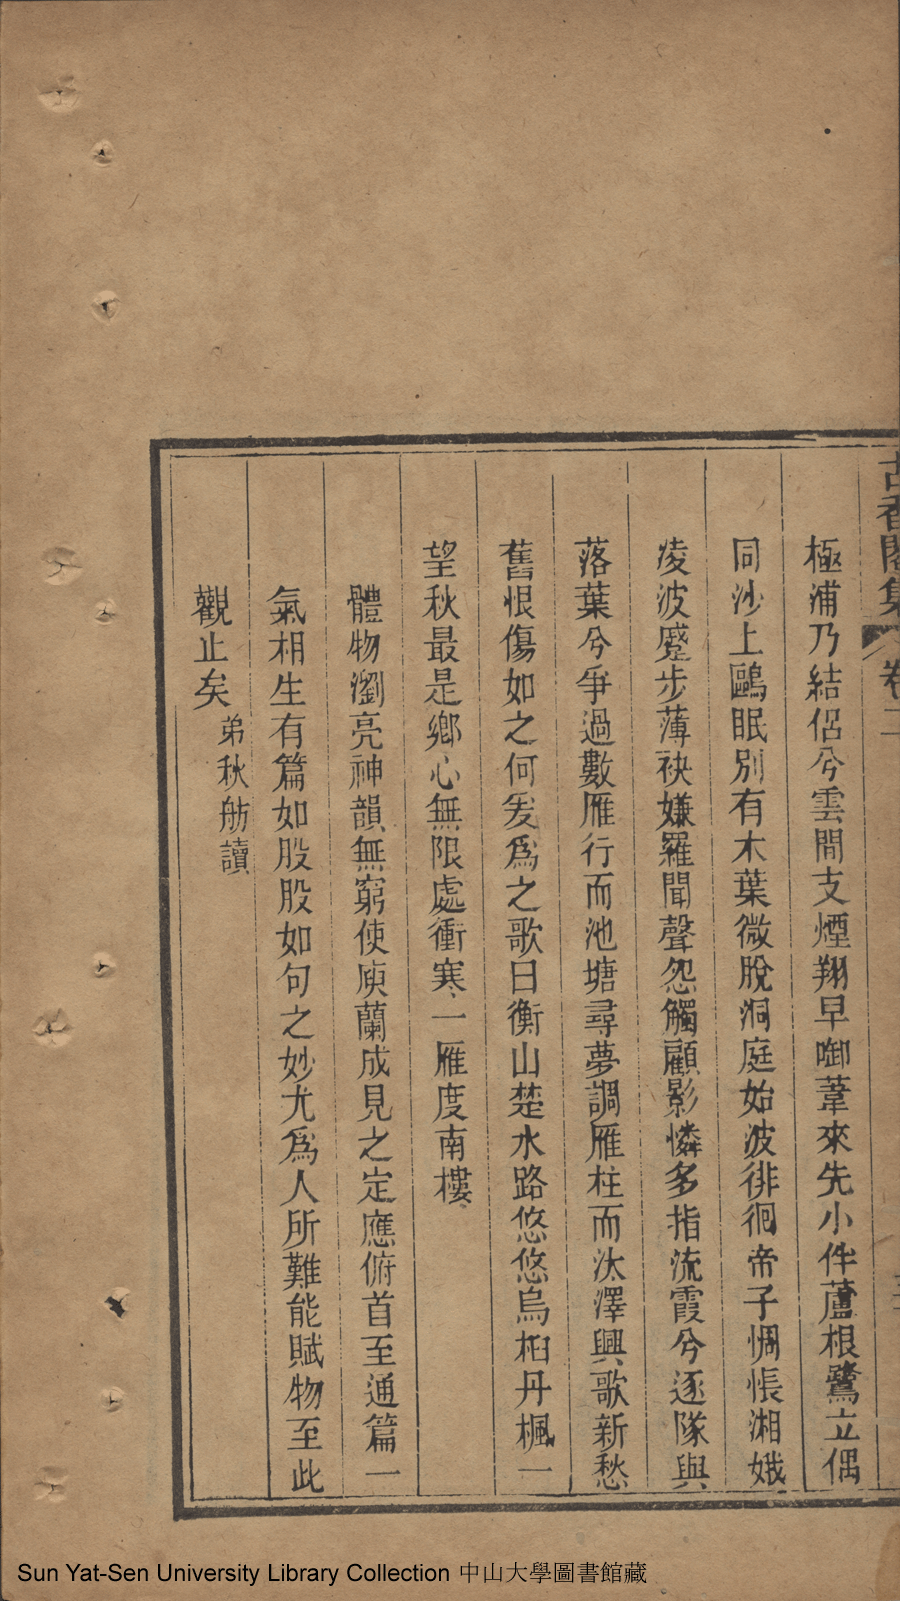 古香閣集 卷二
極浦乃結侶兮雲間支煙翔早啣葦來先小伴蘆根鷺立偶
同沙上鷗眠別有木葉微脫洞庭始波徘徊帝子惆悵湘娥
凌波蹙步薄袂嫌羅聞聲怨觸顧影憐多指流霞兮逐隊與
落葉兮爭過數雁行而池塘尋夢調雁柱而汰澤興歌新愁
舊恨傷如之何爰爲之歌曰衡山楚水路悠悠烏桕丹楓一
望秋最是鄉心無限處衝寒一雁度南樓
體物瀏亮神韻無窮使庾蘭成見之定應俯首至通篇一
氣相生有篇如股股如句之妙尤爲人所難能賦物至此
觀止矣 弟秋舫讀
Sun Yat-Sen University Library Collection 中山大學圖書館藏